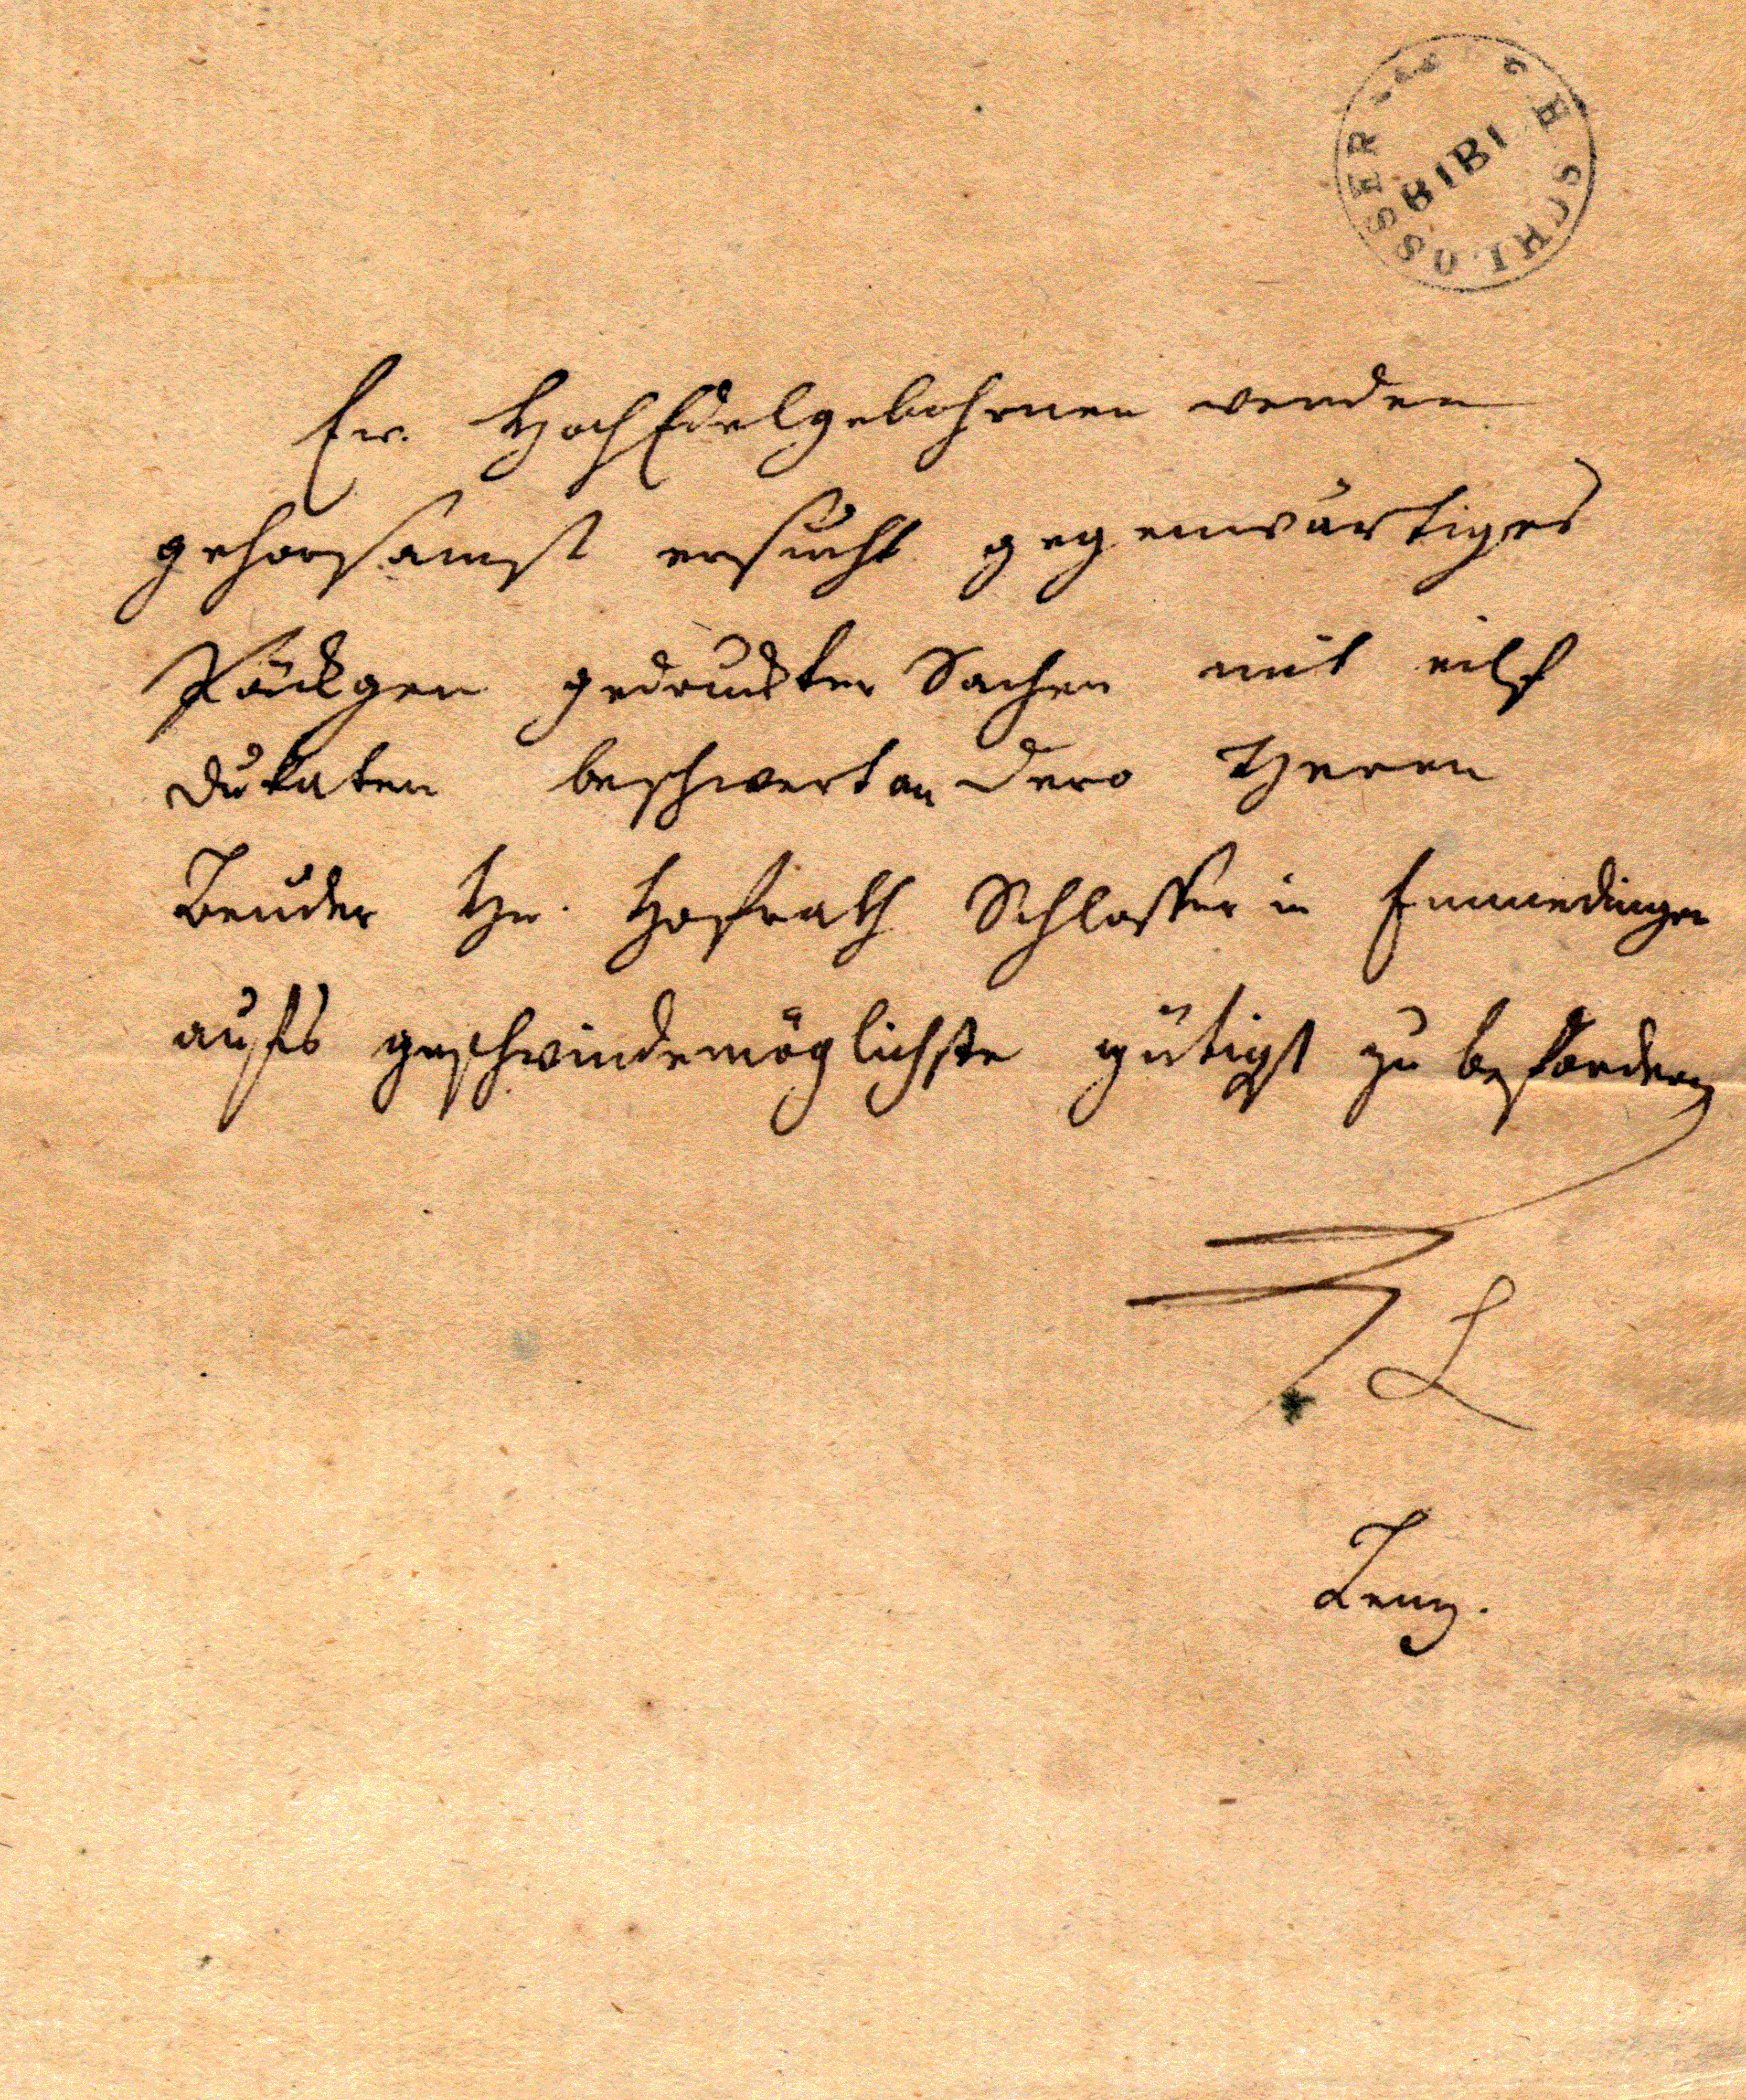 BIBL
SCHLOSSER
Ew. HochEdelgebohrnen werden
gehorsamst ersucht gegenwärtiges
Päckgen gedruckter Sachen mit eilf
Dukaten beschwert an Dero Herren
Bruder Hr. Hofrath Schlosser in Emmedingen
aufs geschwindemöglichste gütigst zu befördern
L
Lenz.